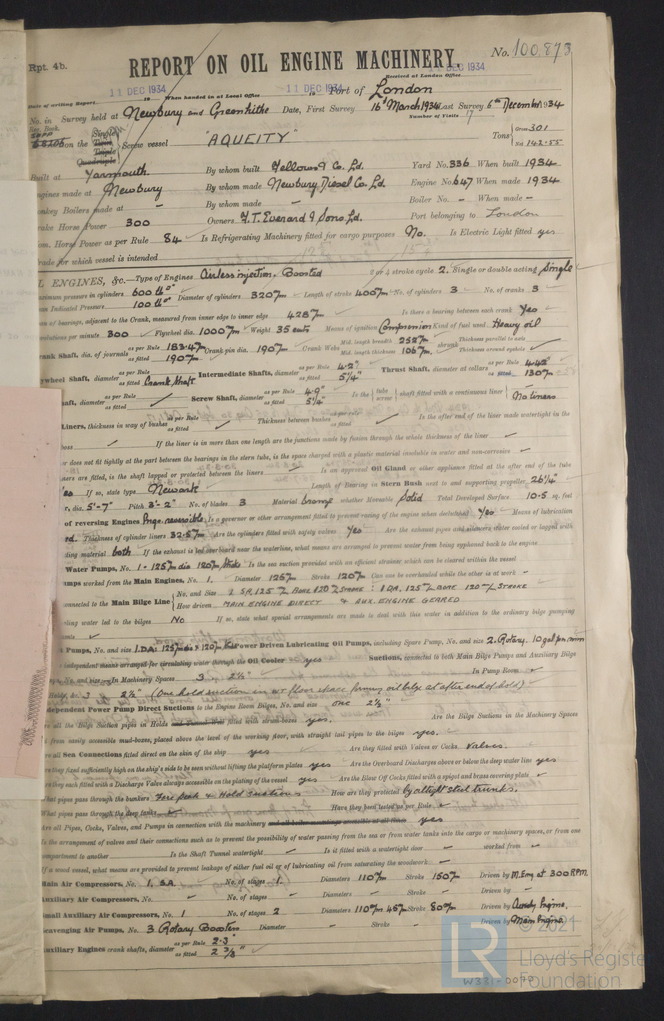 Rpt. 4b. REPORT ON OIL ENGINE MACHINERY. No. 100,873
11 DEC 1934 11 DEC 1934 Received at London Office DEC 1934
Date of writing Report 19 When handed in at Local Office Port of London
No. in Survey held at Newbury and Greenhithe Date, First Survey 16th March 1934 Last Survey 6th December 1934
Reg. Book. Number of Visits 17
on the Single Twin Triple Quadruple Screw vessel "AQUEITY" Tons Gross 301 Net 142.55
Built at Yarmouth By whom built Fellows & Co. Ld. Yard No. 336 When built 1934
Engines made at Newbury By whom made Newbury Diesel Co. Ld. Engine No. 647 When made 1934
Donkey Boilers made at - By whom made - Boiler No. - When made -
Brake Horse Power 300 Owners F.T. Everard & Sons Ld. Port belonging to London
Nom. Horse Power as per Rule 84 Is Refrigerating Machinery fitted for cargo purposes No. Is Electric Light fitted yes
Trade for which vessel is intended
OIL ENGINES, &c.—Type of Engines Airless injection. Boosted 2 or 4 stroke cycle 2. Single or double acting Single
Maximum pressure in cylinders 600 lb Diameter of cylinders 320 Length of stroke 400 No. of cylinders 3 No. of cranks 3
Mean Indicated Pressure 100 lb
Span of bearings, adjacent to the Crank, measured from inner edge to inner edge 428 Is there a bearing between each crank Yes
Revolutions per minute 300 Flywheel dia. 1000 Weight 35 cwts Means of ignition Compression Kind of fuel used Heavy oil
Crank Shaft, dia. of journals as per Rule 183.47 as fitted 190 Crank pin dia. 190 Crank Webs Mid. length breadth 252 Mid. length thickness 106 Thickness parallel to axis Thickness around eyehole
Flywheel Shaft, diameter as per Rule as fitted Crank Shaft Intermediate Shafts, diameter as per Rule 4.2" as fitted 5 1/4" Thrust Shaft, diameter at collars as per Rule 4.42" as fitted 130
Shaft, diameter as per Rule as fitted Screw Shaft, diameter as per Rule 4.9" as fitted 5 1/4" Is the tube screw shaft fitted with a continuous liner No liners
Liners, thickness in way of bushes as per Rule as fitted Thickness between bushes as per rule as fitted Is the after end of the liner made watertight in the
boss If the liner is in more than one length are the junctions made by fusion through the whole thickness of the liner
does not fit tightly at the part between the bearings in the stern tube, is the space charged with a plastic material insoluble in water and non-corrosive
liners are fitted, is the shaft lapped or protected between the liners Is an approved Oil Gland or other appliance fitted at the after end of the tube
If so, state type Newark Length of Bearing in Stern Bush next to and supporting propeller 26 1/4"
dia. 5'-7" Pitch 3'-2" No. of blades 3 Material bronze whether Moveable Solid Total Developed Surface 10.5 sq. feet
of reversing Engines Is a governor or other arrangement fitted to prevent racing of the engine when declutched yes Means of lubrication
Thickness of cylinder liners 32.5 Are the cylinders fitted with safety valves Yes Are the exhaust pipes and silencers water cooled or lagged with
non-conducting material both If the exhaust is led overboard near the waterline, what means are arranged to prevent water from being syphoned back to the engine
Water Pumps, No. 1 - 125 dia 120 stroke Is the sea suction provided with an efficient strainer which can be cleared within the vessel
Pumps worked from the Main Engines, No. 1. Diameter 125 Stroke 120 Can one be overhauled while the other is at work -
connected to the Main Bilge Line No. and Size 1 SR. 125 BORE 120 STROKE : 1 DA. 125 BORE 120 STROKE
How driven MAIN ENGINE DIRECT & AUX. ENGINE GEARED
cooling water led to the bilges No If so, state what special arrangements are made to deal with this water in addition to the ordinary bilge pumping
Pumps, No. and size 1. DA: 125 × 120 Power Driven Lubricating Oil Pumps, including Spare Pump, No. and size 2. Rotary. 10 gal pr. min
independent means arranged for circulating water through the Oil Cooler yes Suctions, connected to both Main Bilge Pumps and Auxiliary Bilge
No. and size:—In Machinery Spaces 3 2 1/2" In Pump Room -
3 2 1/2" (One hold suction in floor space at after end of hold).
Independent Power Pump Direct Suctions to the Engine Room Bilges, No. and size one 2 3/4"
Are all the Bilge Suction pipes in Holds fitted with strum-boxes yes. Are the Bilge Suctions in the Machinery Spaces
from easily accessible mud-boxes, placed above the level of the working floor, with straight tail pipes to the bilges yes.
Are all Sea Connections fitted direct on the skin of the ship yes Are they fitted with Valves or Cocks Valves.
Are they fixed sufficiently high on the ship's side to be seen without lifting the platform plates yes Are the Overboard Discharges above or below the deep water line yes
Are they each fitted with a Discharge Valve always accessible on the plating of the vessel yes Are the Blow Off Cocks fitted with a spigot and brass covering plate
What pipes pass through the bunkers Fore peak & Hold Suctions How are they protected by oiltight steel trunks.
What pipes pass through the deep tanks Have they been tested as per Rule
Are all Pipes, Cocks, Valves, and Pumps in connection with the machinery and all boiler mountings accessible at all times yes
Is the arrangement of valves and their connections such as to prevent the possibility of water passing from the sea or from water tanks into the cargo or machinery spaces, or from one
compartment to another Is the Shaft Tunnel watertight - Is it fitted with a watertight door - worked from -
If a wood vessel, what means are provided to prevent leakage of either fuel oil or of lubricating oil from saturating the woodwork:-
Main Air Compressors, No. 1. S.A. No. of stages 1. Diameters 110 Stroke 150 Driven by M. Eng at 300 RPM.
Auxiliary Air Compressors, No. - No. of stages - Diameters - Stroke - Driven by -
Small Auxiliary Air Compressors, No. 1 No. of stages 2 Diameters 110 45 Stroke 80 Driven by Auxily Engine.
Scavenging Air Pumps, No. 3 Rotary Boosters Diameter - Stroke - Driven by Main Engine.
Auxiliary Engines crank shafts, diameter as per Rule 2.3" as fitted 2 3/8"
© 2021
LR
Lloyd's Register
Foundation
W381-0070